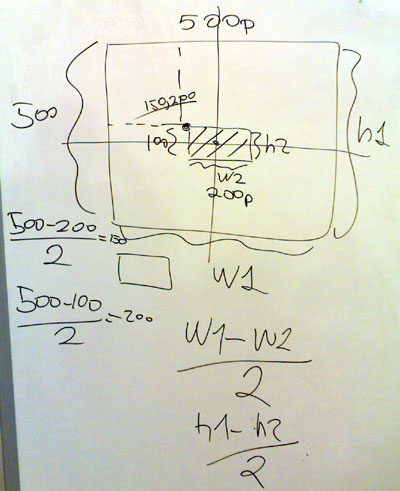 500p
500
150,200
100
h2
h1
W2
200p
500-200
2
=150
W1
500-100
2
=200
W1-W2
2
h1-h2
2